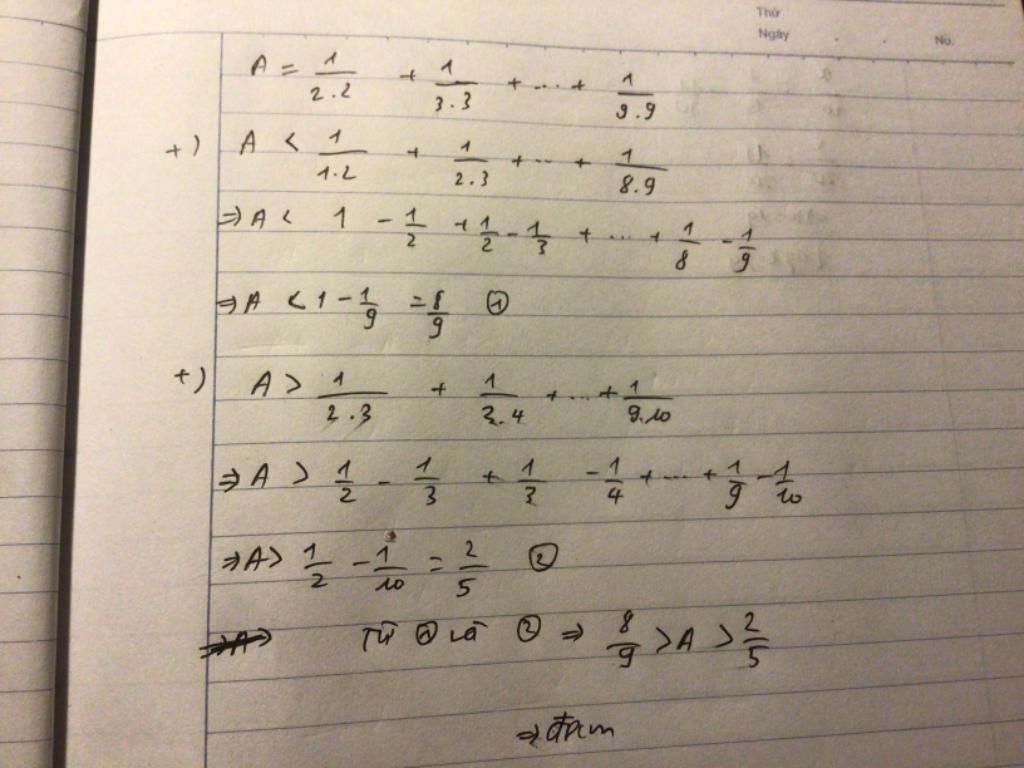 Thứ
Ngày . . No.
A = 1/2.2 + 1/3.3 + ... + 1/9.9
+) A < 1/1.2 + 1/2.3 + ... + 1/8.9
⇒ A < 1 - 1/2 + 1/2 - 1/3 + ... + 1/8 - 1/9
⇒ A < 1 - 1/9 = 8/9 ①
+) A > 1/2.3 + 1/3.4 + ... + 1/9.10
⇒ A > 1/2 - 1/3 + 1/3 - 1/4 + ... + 1/9 - 1/10
⇒ A > 1/2 - 1/10 = 2/5 ②
Từ ① và ② ⇒ 8/9 > A > 2/5
⇒ đpcm